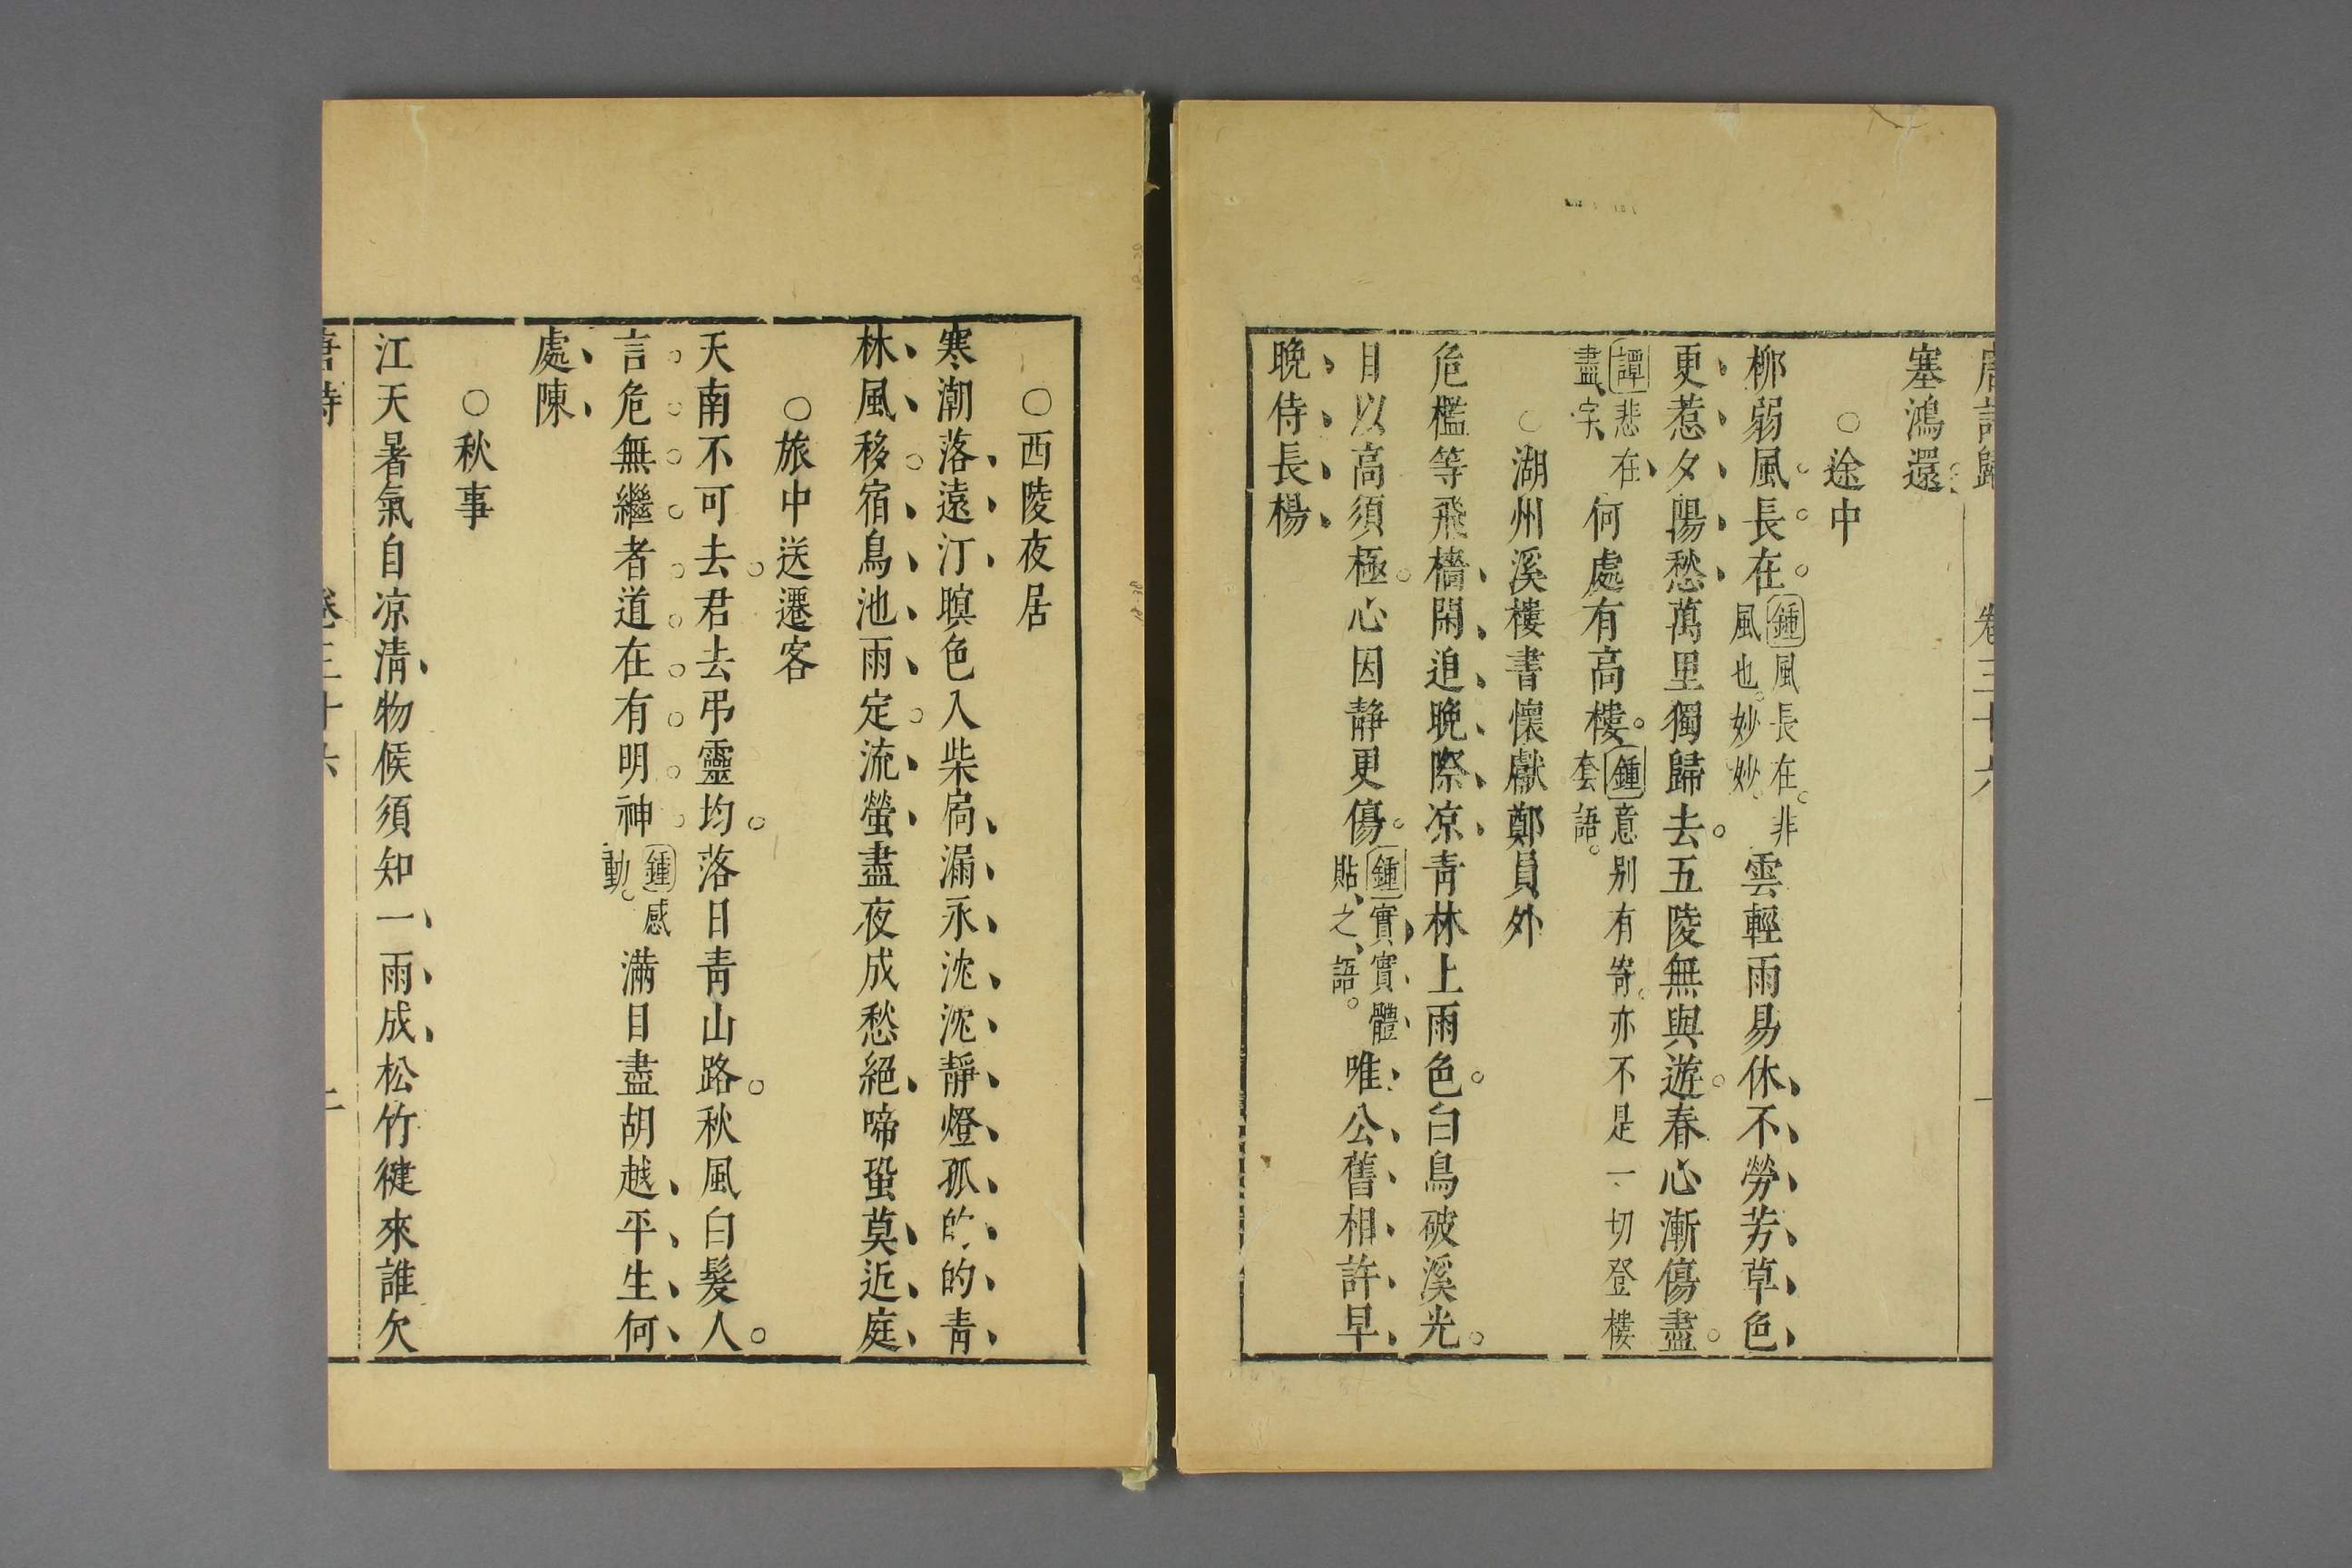 塞鴻還
○途中
柳弱風長在鍾風長在非風也妙妙雲輕雨易休不勞芳草色
更惹夕陽愁萬里獨歸去五陵無與遊春心漸傷盡
譚悲在盡字何處有高樓鍾意別有寄亦不是一切登樓套語
○湖州溪樓書懷獻鄭員外
危檻等飛檣閑追晚際凉青林上雨色白鳥破溪光
目以高須極心因靜更傷鍾實實體貼之語唯公舊相許早
晚侍長楊
○西陵夜居
寒潮落遠汀暝色入柴扃漏永沈沈靜燈孤的的青
林風移宿鳥池雨定流螢盡夜成愁絕啼蛩莫近庭
○旅中送遷客
天南不可去君去弔靈均落日青山路秋風白髮人
言危無繼者道在有明神鍾感動滿目盡胡越平生何
處陳
○秋事
江天暑氣自凉清物候須知一雨成松竹健來誰欠